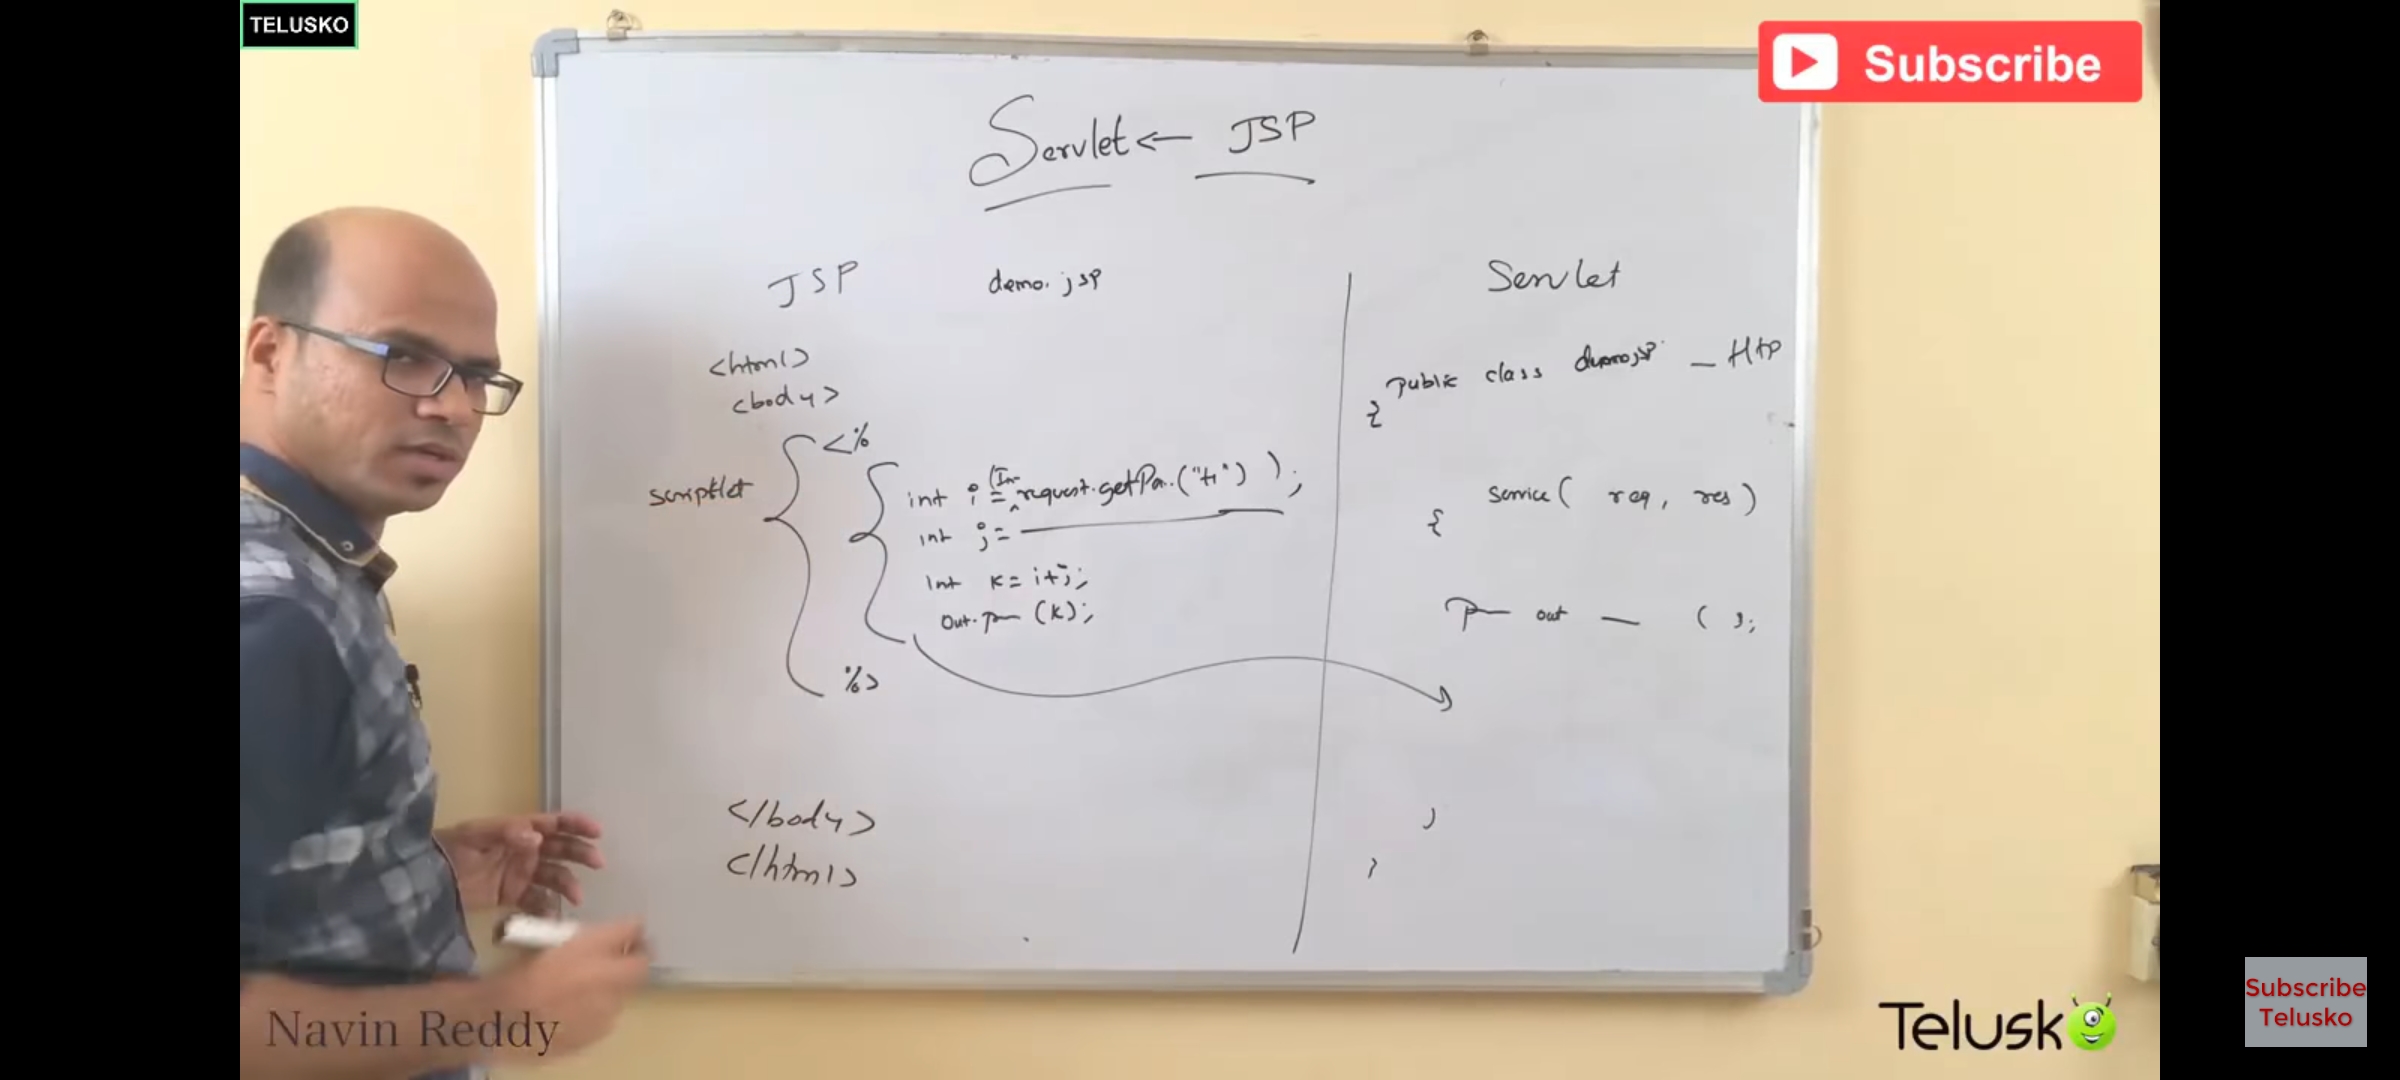 TELUSKO
Subscribe
Servlet ← JSP
JSP demo.jsp
<html>
<body>
<%
scriptlet
int i = (In request.getPa..("t1") );
int j =
int k = i+j;
out.p (k);
%>
</body>
</html>
Servlet
public class demojsp — Htp
{
service( req, res)
{
P— out — ( );
}
}
Navin Reddy
Telusko
Subscribe
Telusko